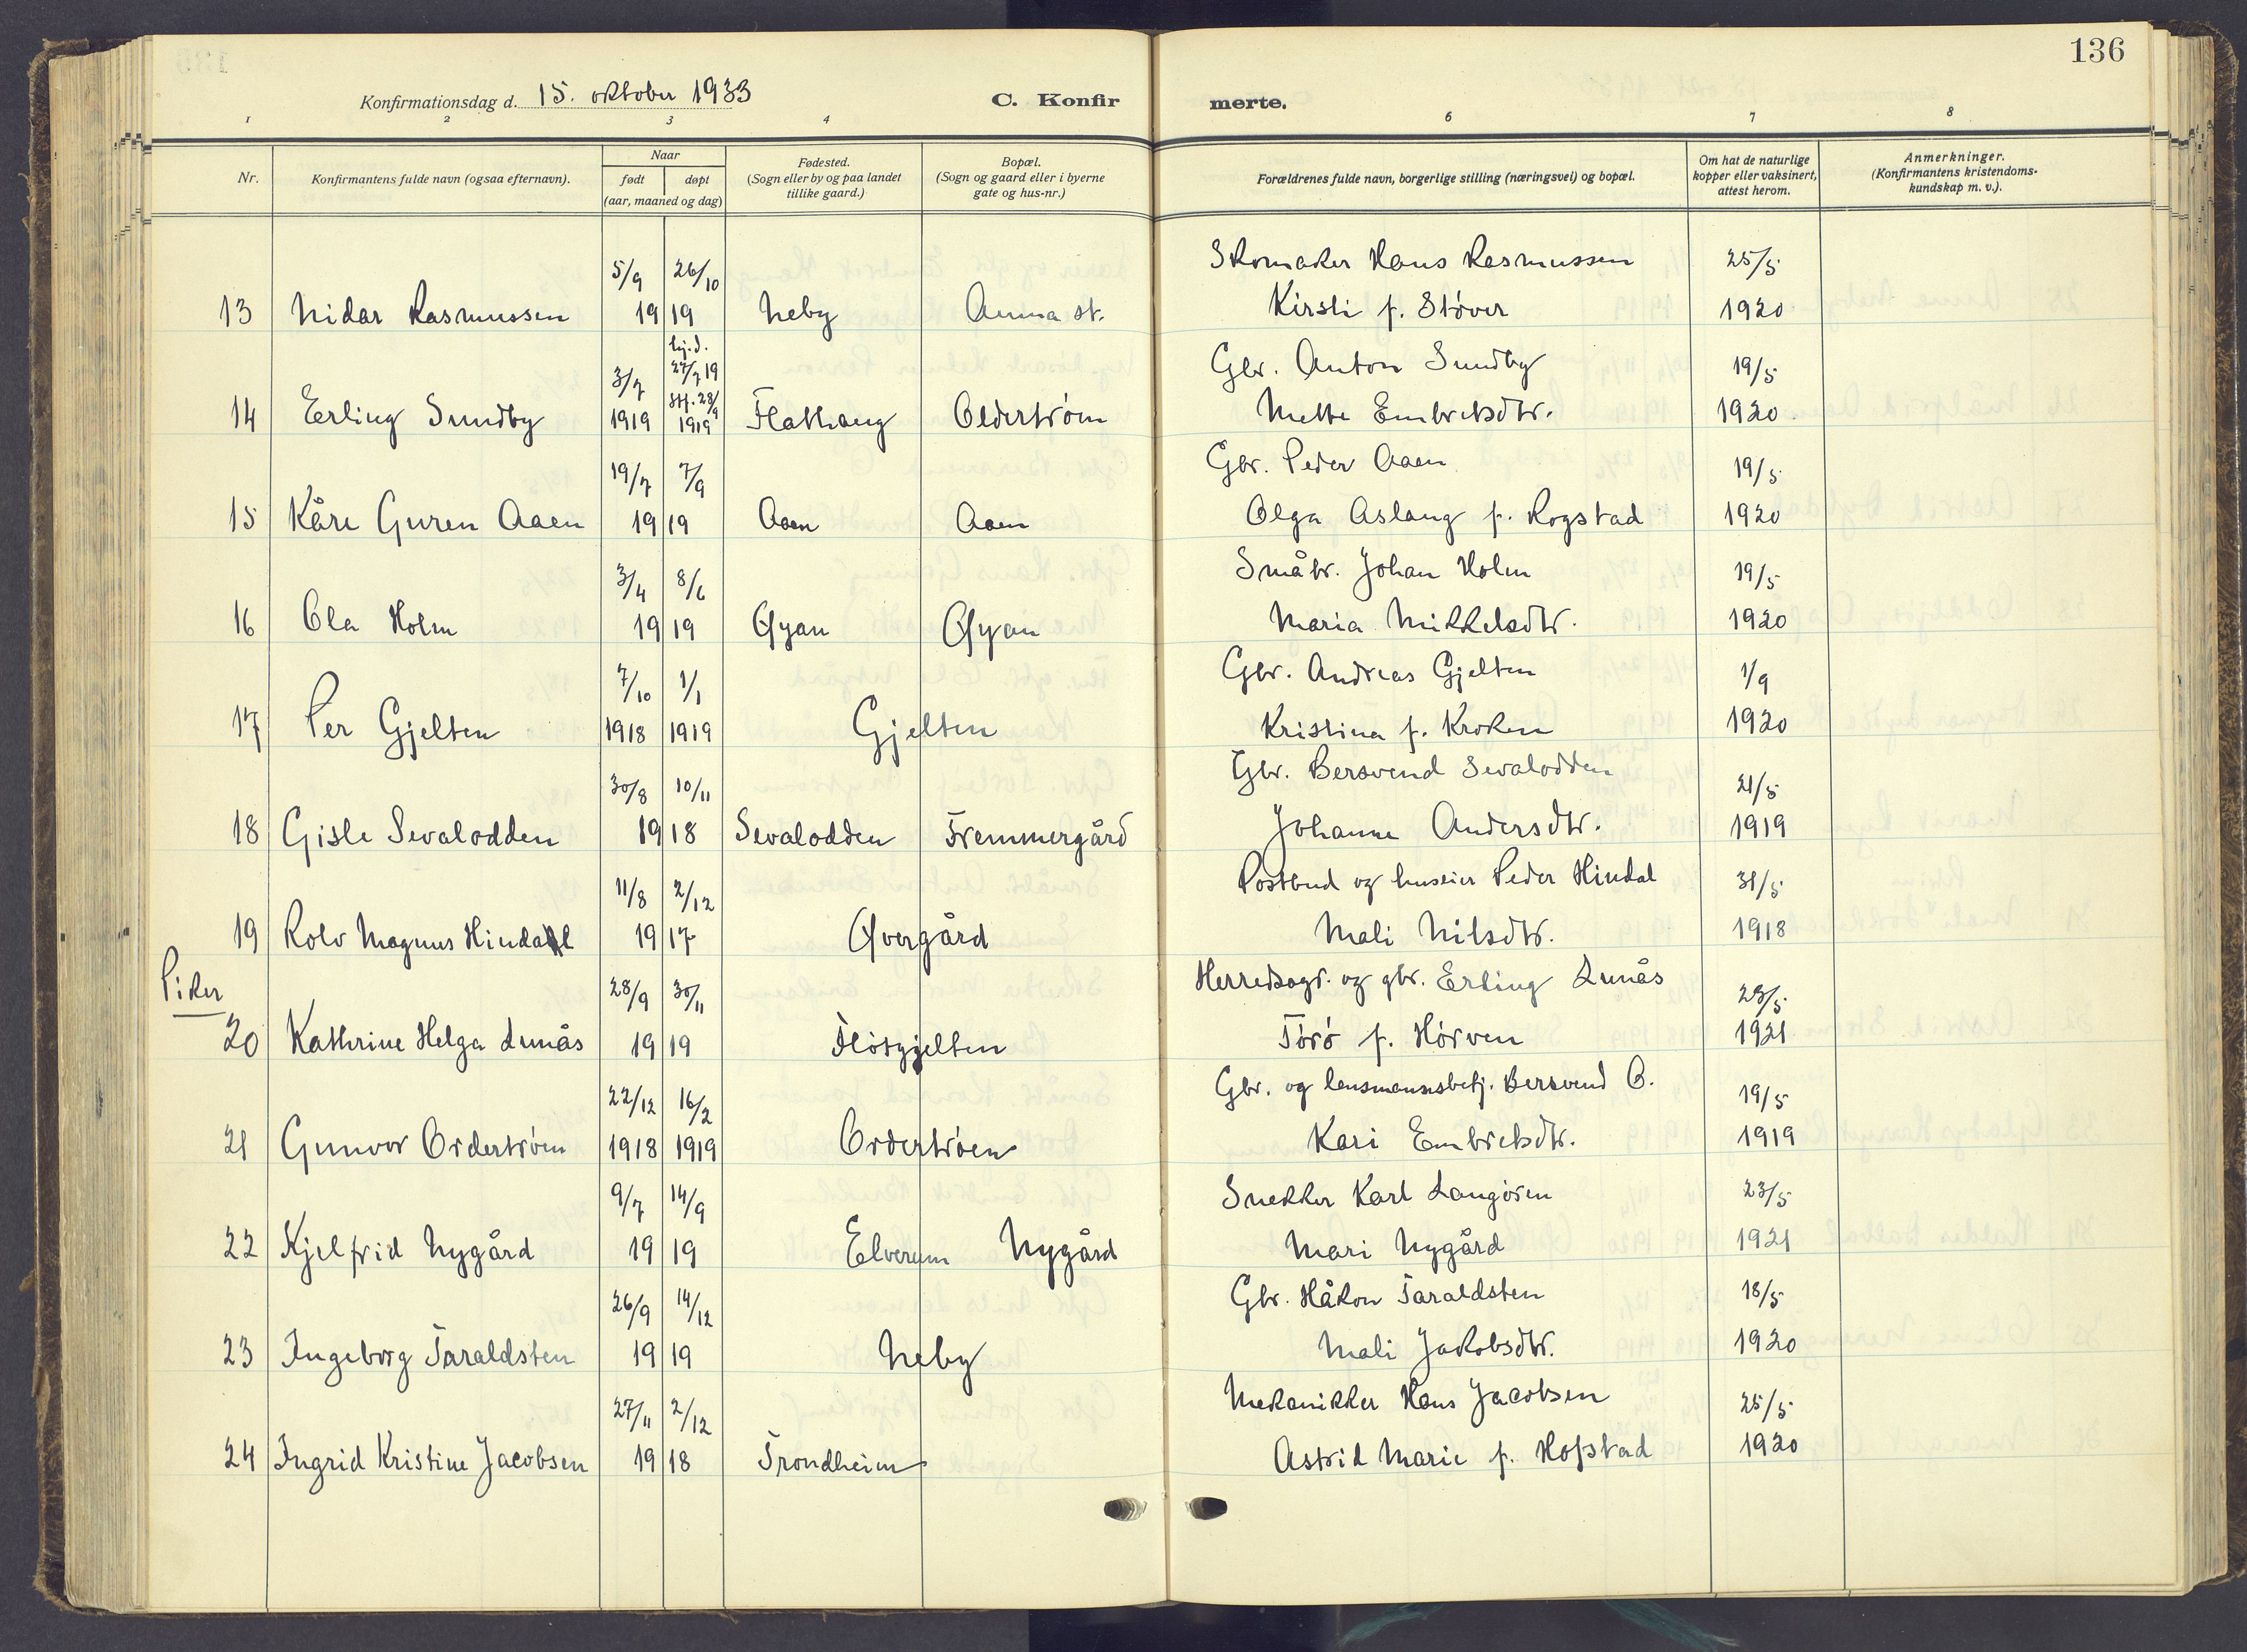 136
Konfirmationsdag d. 15. oktober 1933
C. Konfirmerte.
1 2 3 4 6 7 8
Nr.
Konfirmantens fulde navn (ogsaa efternavn).
Naar
født døpt
(aar, maaned og dag)
Fødested.
(Sogn eller by og paa landet
tillike gaard.)
Bopæl.
(Sogn og gaard eller i byerne
gate og hus-nr.)
Forældrenes fulde navn, borgerlige stilling (næringsvei) og bopæl.
Om hat de naturlige
kopper eller vaksinert,
attest herom.
Anmerkninger.
(Konfirmantens kristendoms-
kundskap m. v.).
5/9 26/10 Skomaker Hans Rasmussen 25/5
13 Nidar Rasmussen 19 19 Neby Auma st. Kirsti f. Støver 1920
hj.d.
3/7 27/7 19 Gbr. Anton Sundby 19/5
st. 28/9
14 Erling Sundby 1919 1919 Flathaug Oldertrøen Mette Embretsdtr. 1920.
19/7 7/9 Gbr. Peder Aaen 19/5
15 Kåre Guren Aaen 19 19 Aaen Aaen Olga Aslaug f. Rogstad 1920
3/4 8/6 Småbr. Johan Holm 19/5
16 Ola Holm 19 19 Øyan Øyan Maria Mikkelsdtr. 1920
7/10 1/1 Gbr. Andreas Gjelten 1/9
17 Per Gjelten 1918 1919 Gjelten Kristina f. Kroken 1920
30/8 10/11 Gbr. Bersvend Sevalodden 21/5
18 Gisle Sevalodden 19 18 Sevalodden Fremmergård Johanne Andersdtr. 1919
11/8 2/12 Postbud og huseier Peder Hindal 31/5
19 Rolv Magnus Hindal 19 17 Øvergård Mali Nilsdtr. 1918
Piker
28/9 30/11 Herredsagr. og gbr. Erling Lunås 23/5
20 Kathrine Helga Lunås 19 19 Fløtgjelten Tørø f. Hørven 1921
22/12 16/2 Gbr. og lensmannsbetj. Bersvend O. 19/5
21 Gunvor Ordertrøen 1918 1919 Ordertrøen Kari Embretsdtr. 1919
9/7 14/9 Snekker Karl Langøren 23/5
22 Kjelfrid Nygård 19 19 Elverum Nygård Mari Nygård 1921
26/9 14/12 Gbr. Håkon Taraldsten 18/5
23 Ingeborg Taraldsten 19 19 Neby Mali Jakobsdtr. 1920
27/11 2/12 Mekanikker Hans Jacobsen 25/5
24 Ingrid Kristine Jacobsen 19 18 Trondheim Astrid Marie f. Hofstad 1920